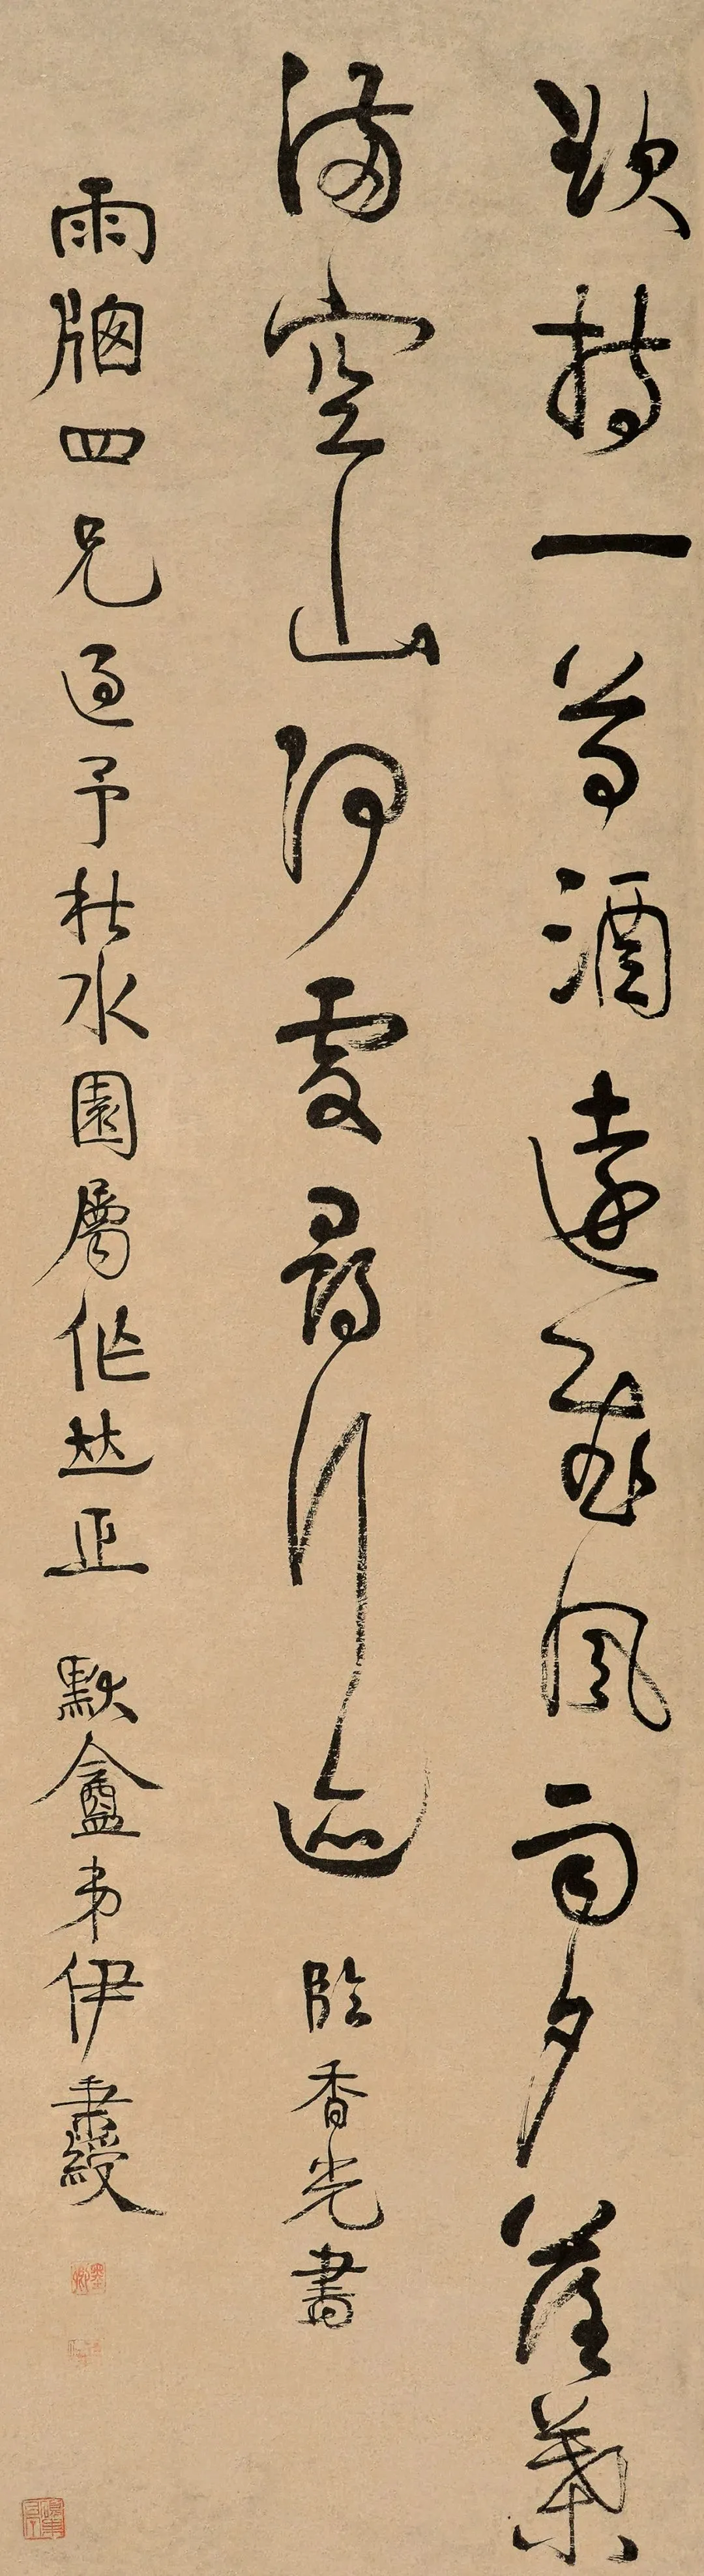 欲持一尊酒遠慰風雨夕落葉
滿空山何處尋行迹臨香光書
雨牎四兄過予秋水園屬作並正 默盦弟伊秉綬